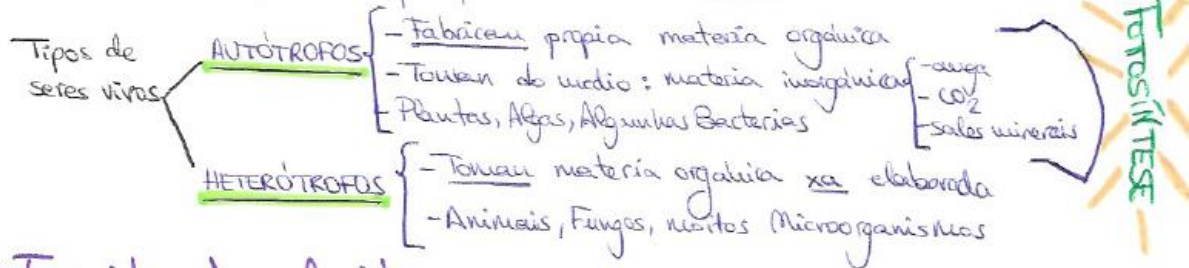 Tipos de
seres vivos
AUTÓTROFOS
- Fabrican propia materia orgánica
- Toman do medio: materia inorgánica
- auga
- CO2
- sales minerais
- Plantas, Algas, Algunhas Bacterias
HETERÓTROFOS
- Toman materia orgánica xa elaborada
- Animais, Fungos, moitos Microorganismos
FOTOSÍNTESE